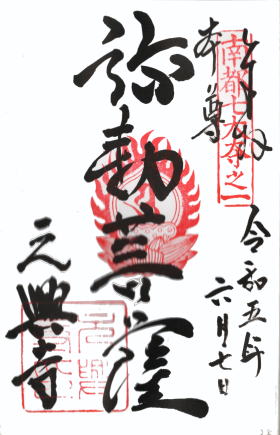 奉拝
南都七大寺之一
本尊
令和五年
六月七日
弥勒菩薩
元興寺